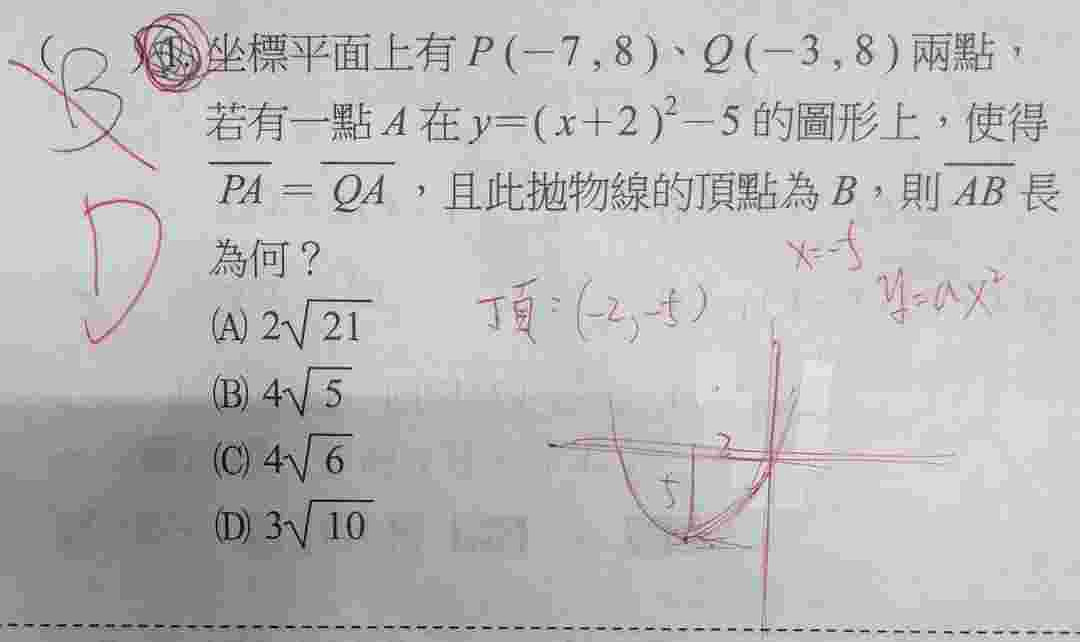 ( B ) 1. 坐標平面上有 P(−7,8)、Q(−3,8)兩點,
若有一點 A 在 y=(x+2)²−5 的圖形上,使得
D
PA = QA,且此拋物線的頂點為 B,則 AB 長
為何?
x=-5
y=ax²
頂:(-2,-5)
(A) 2√21
(B) 4√5
(C) 4√6
(D) 3√10
2
5